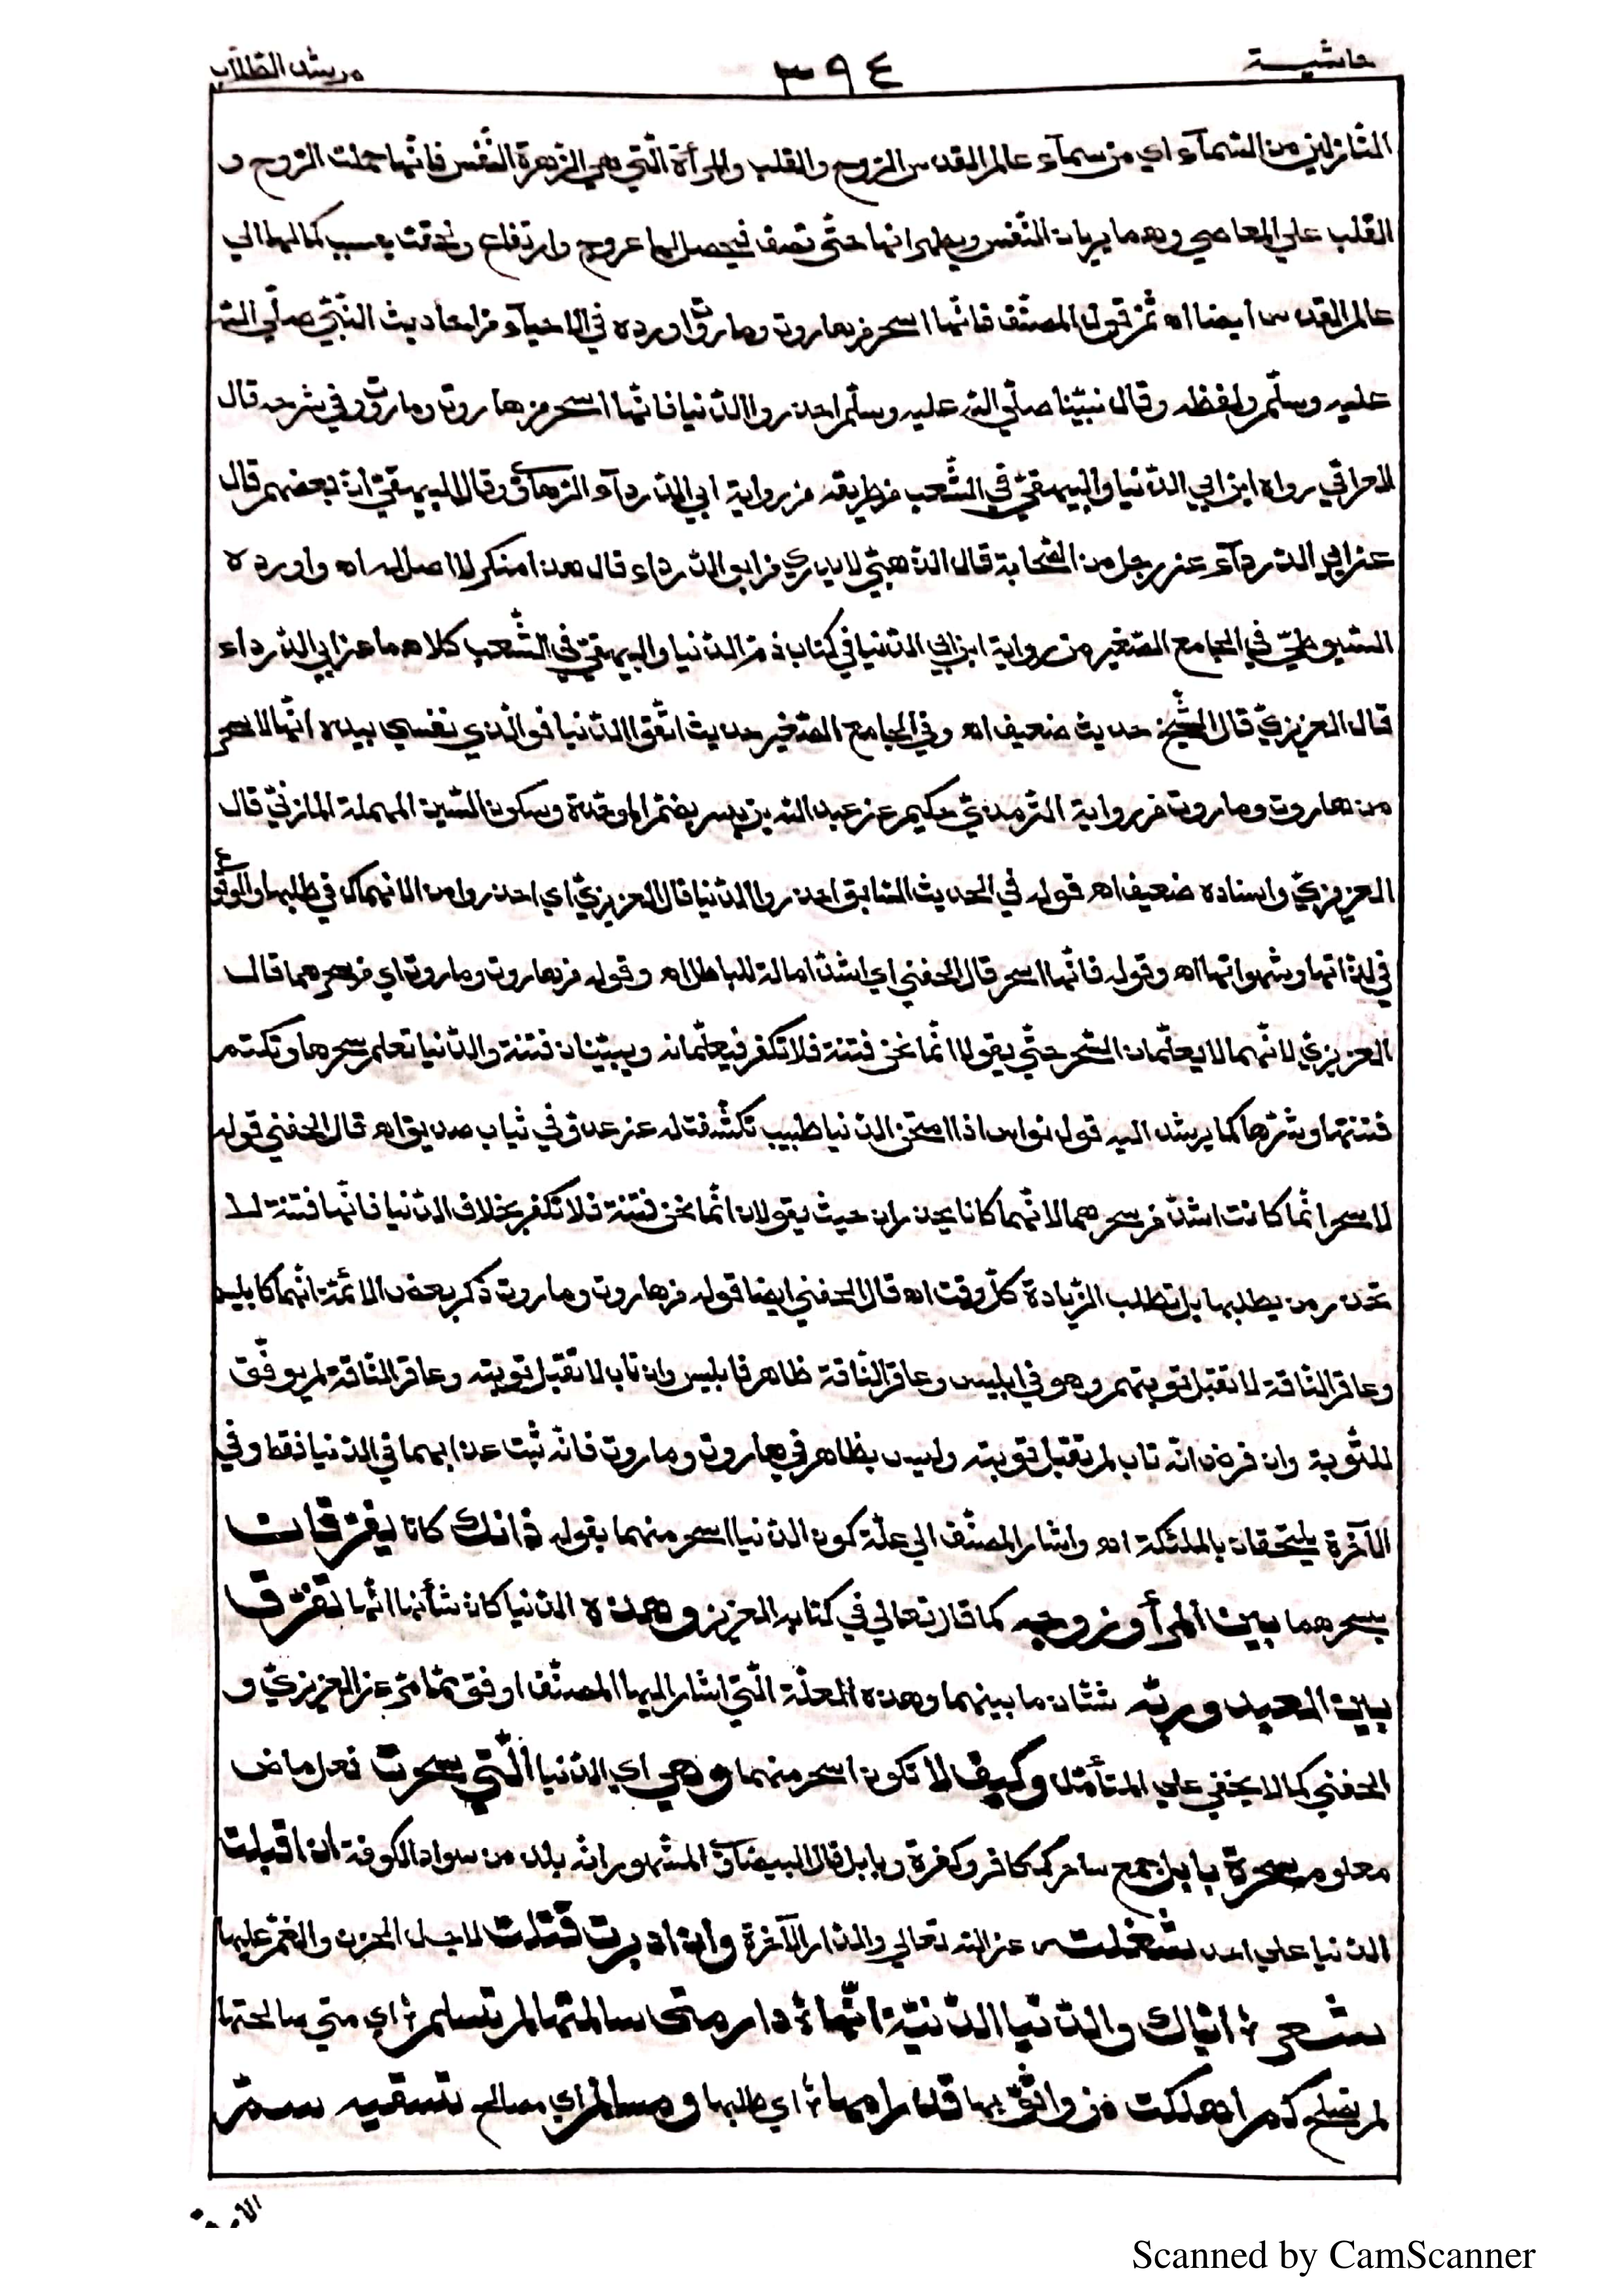 حاشية ٣٩٤ مرشد الطلاب
النازلين من السمآء اي من سمآء عالم القدس الروح والقلب والمرأة الّتي هي الزهرة النّفس فانّها حملت الروح و
القلب علي المعاصي وهما يربيان النّفس ويطهرانها حتّي تصف فيحصل لها عروج وارتفاع ولحقت بسبب كمالها الي
عالم القدس أيضا اه ثمّ قول المصنّف فانّها اسحر من هاروت وماروت اورده في الاحيآء من احاديث النّبيّ صلّي الله
عليه وسلّم ولفظه وقال نبيّنا صلّي الله عليه وسلّم احذروا الدّنيا فانّها اسحر من هاروت وماروت وفي شرحه قال
العراقي رواه ابن ابي الدّنيا والبيهقيّ في الشّعب من طريقه من رواية ابي الدّردآء الرّهاويّ وقال البيهقيّ انّ بعضهم قال
عن ابي الدّردآء عن رجل من الصّحابة قال الذّهبيّ لا يدري من ابو الدّرداء قال هذا منكر لا اصل له اه واورده
السّيوطيّ في الجامع الصّغير من رواية ابن ابي الدّنيا في كتاب ذمّ الدّنيا والبيهقيّ في الشّعب كلاهما عن ابي الدّرداء
قال العزيزيّ قال الشّيخ حديث ضعيف اه وفي الجامع الصّغير حديث اتّقوا الدّنيا فوالّذي نفسي بيده انّها لاسحر
من هاروت وماروت من رواية التّرمذيّ حكيم عن عبد الله بن بسر بضمّ الموحّدة وسكون السّين المهملة المازنيّ قال
العزيزيّ واسناده ضعيف اه قوله في الحديث السّابق احذروا الدّنيا قال العزيزيّ اي احذروا من الانهماك في طلبها والوقوع
في لذّاتها وشهواتها اه وقوله فانّها اسحر قال الحفني اي اشدّ امالة للباطل اه وقوله من هاروت وماروت اي من سحرهما قال
العزيزيّ لانّهما لا يعلّمان السّحر حتّي يقولا انّما نحن فتنة فلا تكفر فيعلّمانه ويبيّنان فتنته والدّنيا تعلم سحرها وتكتم
فتنتها وشرّها كما يرشد اليه قول نواس اذا امتحن الدّنيا طبيب تكشّفت له عن عدوّ في ثياب صديق اه قال الحفني قوله
لاسحر انّما كانت اشدّ من سحرهما لانّهما كانا يحذران حيث يقولان انّما نحن فتنة فلا تكفر بخلاف الدّنيا فانّها فتنة لا
تحذر من يطلبها بل تطلب الزّيادة كلّ وقت اه قال الحفني ايضا قوله من هاروت وماروت ذكر بعض الائمّة انّهما كابليس
وعاقر النّاقة لا تقبل توبتهم وهو في ابليس وعاقر النّاقة ظاهر فابليس وان تاب لا تقبل توبته وعاقر النّاقة لم يوفّق
للتّوبة وان فرض انّه تاب لم تقبل توبته وليس بظاهر في هاروت وماروت فانّه ثبت عذابهما في الدّنيا فقط وفي
الآخرة يلتحقان بالملئكة اه واشار المصنّف الي علّة كون الدّنيا اسحر منهما بقوله ذانك كانا يفرّقان
بسحرهما بين المرأ وزوجه كما قال تعالي في كتابه العزيز وهذه الدّنيا كان شأنها انّها تفرّق
بين العبد وربّه شتّان ما بينهما وهذه العلّة الّتي اشار اليها المصنّف اوفق ممّا مرّ عن العزيزيّ و
الحفني كما لا يخفي علي المتأمّل وكيف لا تكون اسحر منهما وهي اي الدّنيا الّتي سحرت فعل ماض
معلوم سحرة بابل جمع ساحر ككافر وكفرة وبابل قال البيضاويّ المشهور انّه بلد من سواد الكوفة ان اقبلت
الدّنيا علي احد شغلت عن الله تعالي والدّار الآخرة وان ادبرت قتلت لاجل الحزن والغمّ عليها
شعر ؛ ايّاك والدّنيا الدّنيّة انّها ؛ دار متي سالمتها لم تسلم ؛ اي متي صالحتها
لم تصلح كم اهلكت من واثق بها قد رامها ؛ اي طلبها ومسالم اي مصالح تسقيه سمّ